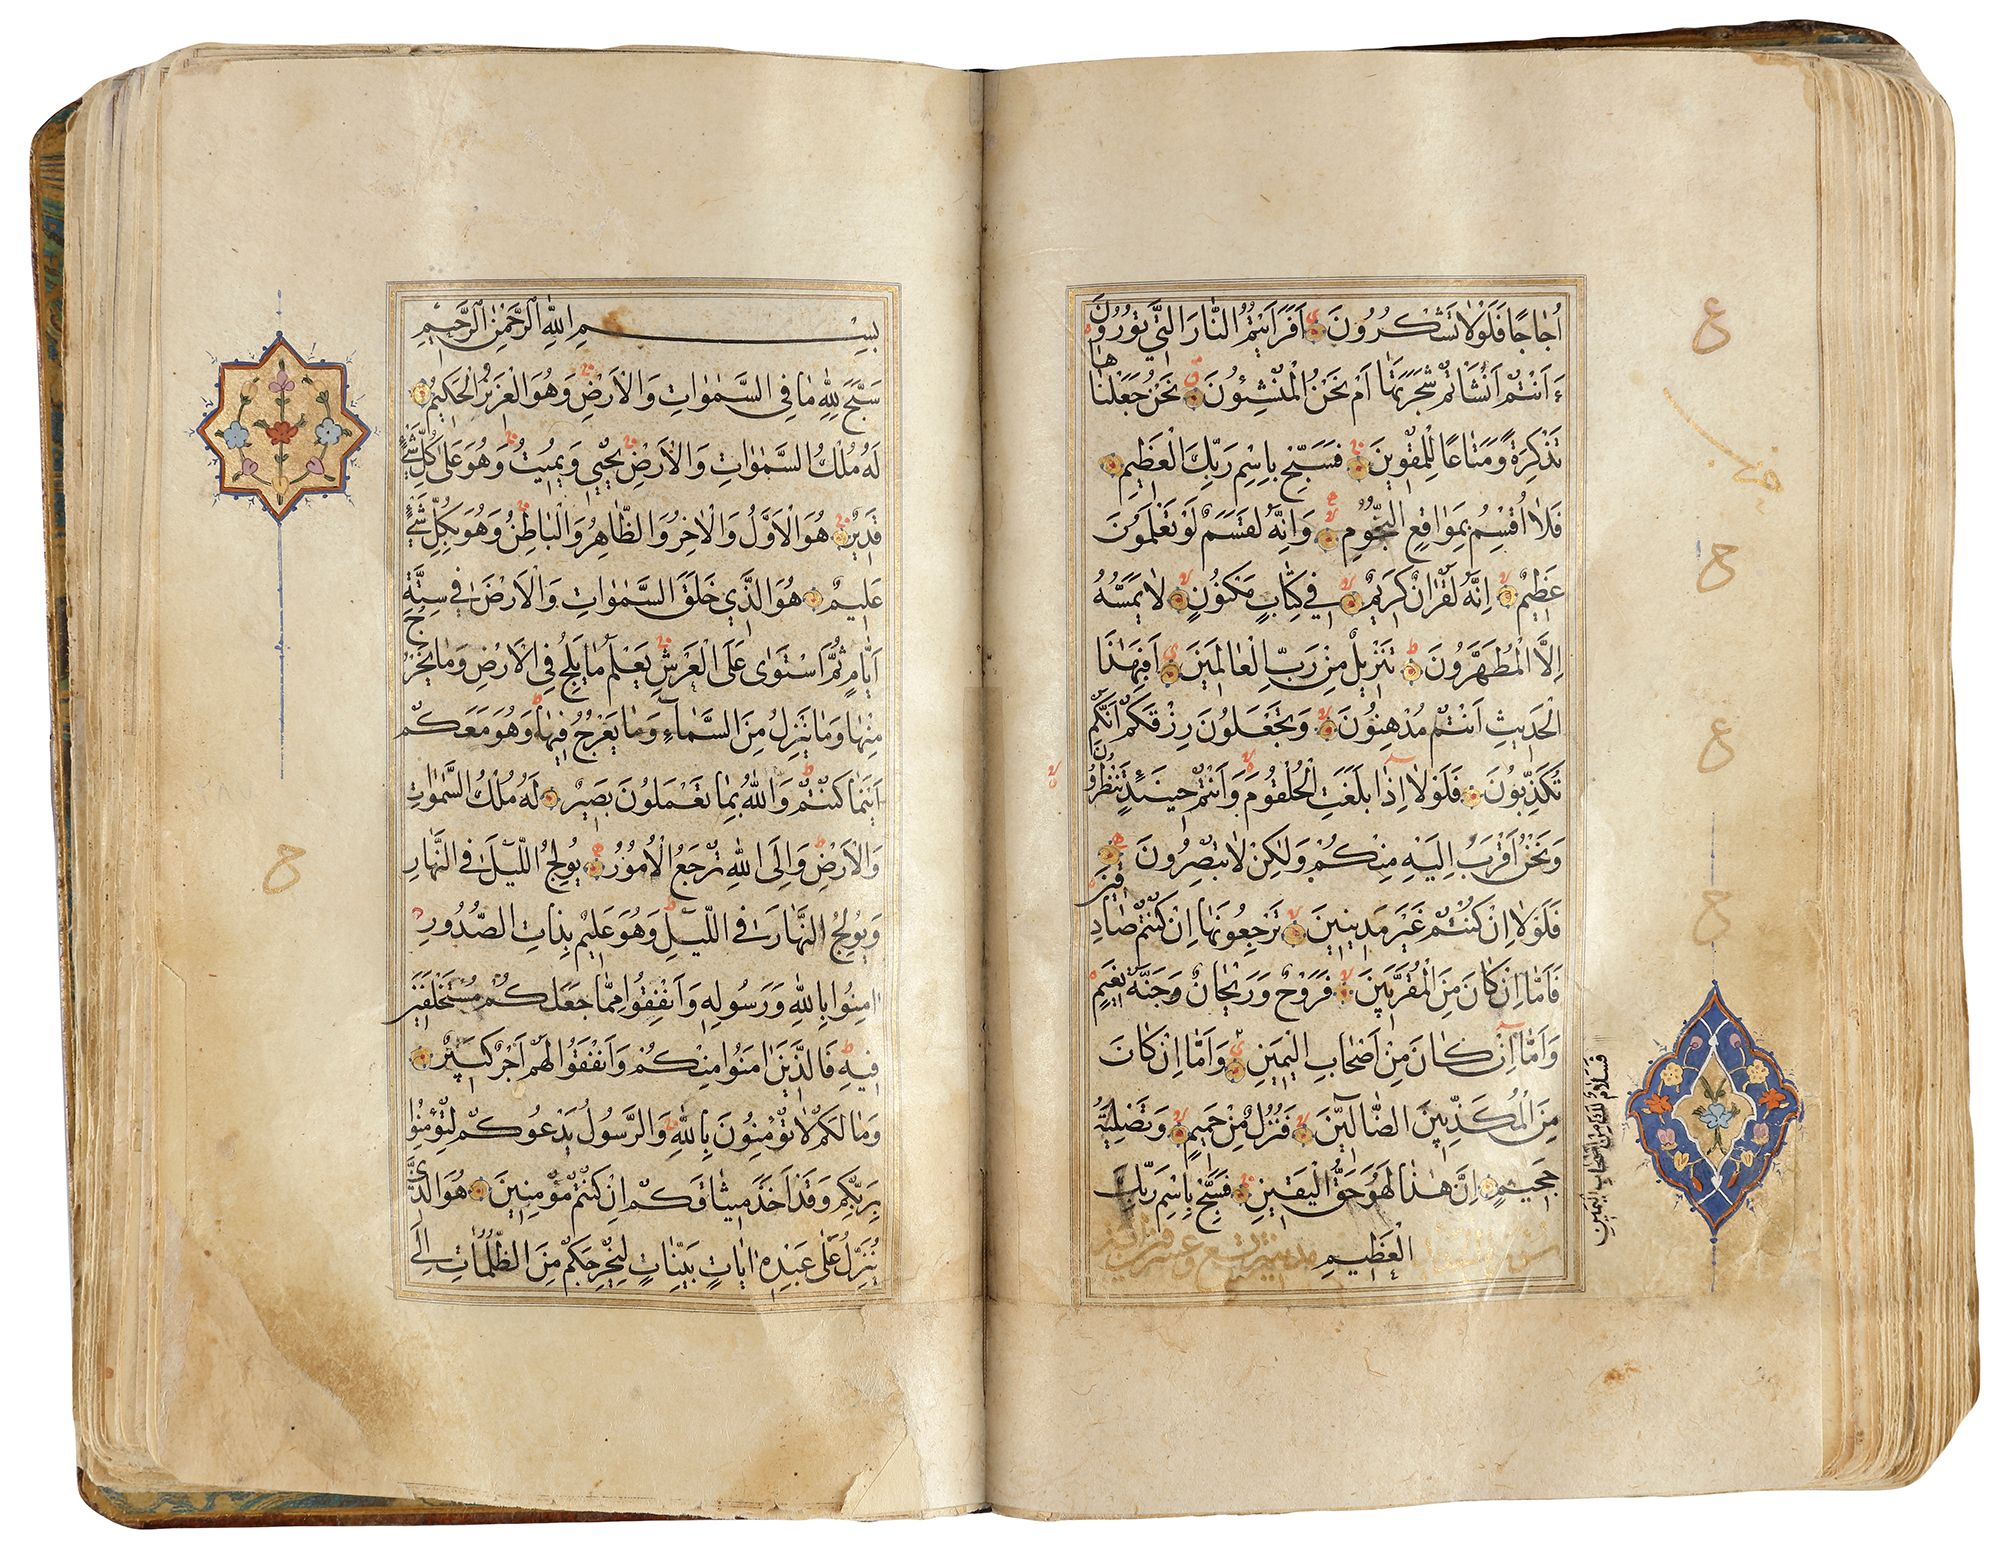 اُجَاجًا فَلَوْلَا تَشْكُرُونَ اَفَرَاَيْتُمُ النَّارَ الَّتِي تُورُونَ
ءَاَنْتُمْ اَنْشَاْتُمْ شَجَرَتَهَا اَمْ نَحْنُ الْمُنْشِئُونَ نَحْنُ جَعَلْنَاهَا
تَذْكِرَةً وَمَتَاعًا لِلْمُقْوِينَ فَسَبِّحْ بِاسْمِ رَبِّكَ الْعَظِيمِ
فَلَا اُقْسِمُ بِمَوَاقِعِ النُّجُومِ وَاِنَّهُ لَقَسَمٌ لَوْ تَعْلَمُونَ
عَظِيمٌ اِنَّهُ لَقُرْاٰنٌ كَرِيمٌ فِي كِتَابٍ مَكْنُونٍ لَا يَمَسُّهُ
اِلَّا الْمُطَهَّرُونَ تَنْزِيلٌ مِنْ رَبِّ الْعَالَمِينَ اَفَبِهٰذَا
الْحَدِيثِ اَنْتُمْ مُدْهِنُونَ وَتَجْعَلُونَ رِزْقَكُمْ اَنَّكُمْ
تُكَذِّبُونَ فَلَوْلَا اِذَا بَلَغَتِ الْحُلْقُومَ وَاَنْتُمْ حِينَئِذٍ تَنْظُرُونَ
وَنَحْنُ اَقْرَبُ اِلَيْهِ مِنْكُمْ وَلٰكِنْ لَا تُبْصِرُونَ
فَلَوْلَا اِنْ كُنْتُمْ غَيْرَ مَدِينِينَ تَرْجِعُونَهَا اِنْ كُنْتُمْ صَادِقِينَ
فَاَمَّا اِنْ كَانَ مِنَ الْمُقَرَّبِينَ فَرَوْحٌ وَرَيْحَانٌ وَجَنَّةُ نَعِيمٍ
وَاَمَّا اِنْ كَانَ مِنْ اَصْحَابِ الْيَمِينِ وَاَمَّا اِنْ كَانَ
مِنَ الْمُكَذِّبِينَ الضَّالِّينَ فَنُزُلٌ مِنْ حَمِيمٍ وَتَصْلِيَةُ
جَحِيمٍ اِنَّ هٰذَا لَهُوَ حَقُّ الْيَقِينِ فَسَبِّحْ بِاسْمِ رَبِّكَ
الْعَظِيمِ
فَسَلَامٌ لَكَ مِنْ اَصْحَابِ الْيَمِينِ
ع
ح
ع
ح
بِسْمِ اللهِ الرَّحْمٰنِ الرَّحِيمِ
سَبَّحَ لِلّٰهِ مَا فِي السَّمٰوَاتِ وَالْاَرْضِ وَهُوَ الْعَزِيزُ الْحَكِيمُ
لَهُ مُلْكُ السَّمٰوَاتِ وَالْاَرْضِ يُحْيِي وَيُمِيتُ وَهُوَ عَلَى كُلِّ شَيْءٍ
قَدِيرٌ هُوَ الْاَوَّلُ وَالْاٰخِرُ وَالظَّاهِرُ وَالْبَاطِنُ وَهُوَ بِكُلِّ شَيْءٍ
عَلِيمٌ هُوَ الَّذِي خَلَقَ السَّمٰوَاتِ وَالْاَرْضَ فِي سِتَّةِ
اَيَّامٍ ثُمَّ اسْتَوٰى عَلَى الْعَرْشِ يَعْلَمُ مَا يَلِجُ فِي الْاَرْضِ وَمَا يَخْرُجُ
مِنْهَا وَمَا يَنْزِلُ مِنَ السَّمَاءِ وَمَا يَعْرُجُ فِيهَا وَهُوَ مَعَكُمْ
اَيْنَمَا كُنْتُمْ وَاللهُ بِمَا تَعْمَلُونَ بَصِيرٌ لَهُ مُلْكُ السَّمٰوَاتِ
وَالْاَرْضِ وَاِلَى اللهِ تُرْجَعُ الْاُمُورُ يُولِجُ اللَّيْلَ فِي النَّهَارِ
وَيُولِجُ النَّهَارَ فِي اللَّيْلِ وَهُوَ عَلِيمٌ بِذَاتِ الصُّدُورِ
اٰمِنُوا بِاللهِ وَرَسُولِهِ وَاَنْفِقُوا مِمَّا جَعَلَكُمْ مُسْتَخْلَفِينَ
فِيهِ فَالَّذِينَ اٰمَنُوا مِنْكُمْ وَاَنْفَقُوا لَهُمْ اَجْرٌ كَبِيرٌ
وَمَا لَكُمْ لَا تُؤْمِنُونَ بِاللهِ وَالرَّسُولُ يَدْعُوكُمْ لِتُؤْمِنُوا
بِرَبِّكُمْ وَقَدْ اَخَذَ مِيثَاقَكُمْ اِنْ كُنْتُمْ مُؤْمِنِينَ هُوَ الَّذِي
يُنَزِّلُ عَلَى عَبْدِهِ اٰيَاتٍ بَيِّنَاتٍ لِيُخْرِجَكُمْ مِنَ الظُّلُمَاتِ اِلَى
ح